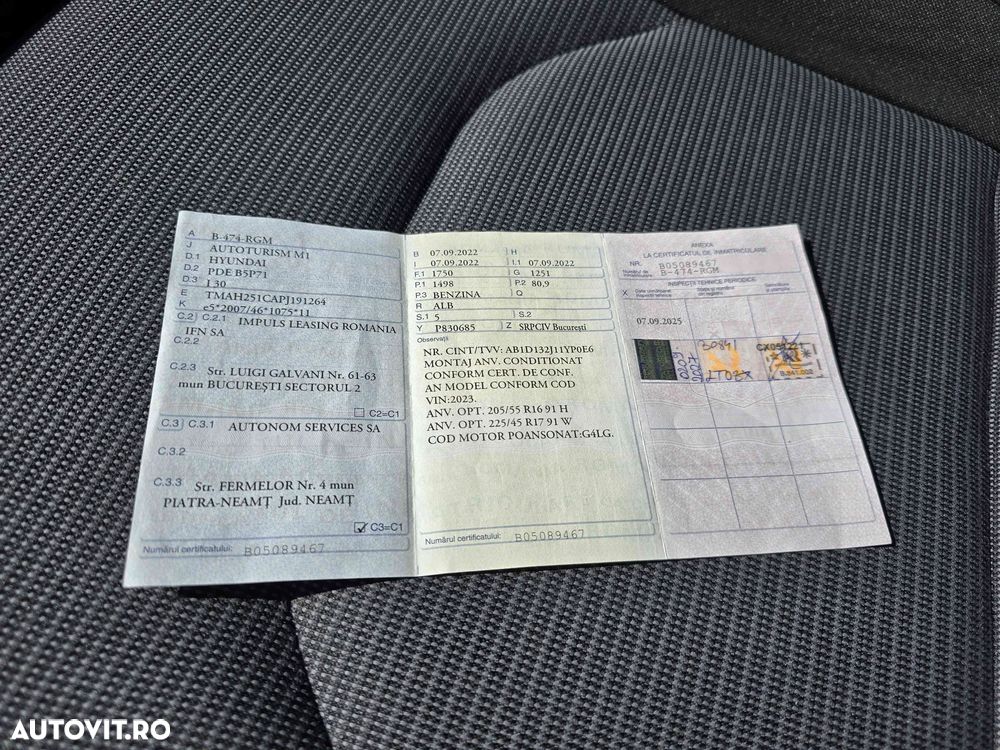 A B-474-RGM
J AUTOTURISM M1
D.1 HYUNDAI
D.2 PDE B5P71
D.3 I 30
E TMAH251CAPJ191264
K e5*2007/46*1075*11
C.2 C.2.1 IMPULS LEASING ROMANIA
IFN SA
C.2.2
C.2.3 Str. LUIGI GALVANI Nr. 61-63
mun BUCUREŞTI SECTORUL 2
C2=C1
C.3 C.3.1 AUTONOM SERVICES SA
C.3.2
C.3.3 Str. FERMELOR Nr. 4 mun
PIATRA-NEAMŢ Jud. NEAMŢ
C3=C1
Numărul certificatului: B05089467
B 07.09.2022 H
I 07.09.2022 I.1 07.09.2022
F.1 1750 G 1251
P.1 1498 P.2 80,9
P.3 BENZINA Q
R ALB
S.1 5 S.2
Y P830685 Z SRPCIV Bucureşti
Observaţii
NR. CINT/TVV: AB1D132J11YP0E6
MONTAJ ANV. CONDITIONAT
CONFORM CERT. DE CONF.
AN MODEL CONFORM COD
VIN:2023.
ANV. OPT. 205/55 R16 91 H
ANV. OPT. 225/45 R17 91 W
COD MOTOR POANSONAT:G4LG.
Numărul certificatului: B05089467
ANEXA
LA CERTIFICATUL DE ÎNMATRICULARE
NR. B05089467
Numărul de înmatriculare B-474-RGM
INSPECŢII TEHNICE PERIODICE
X
07.09.2025
AUTOVIT.RO